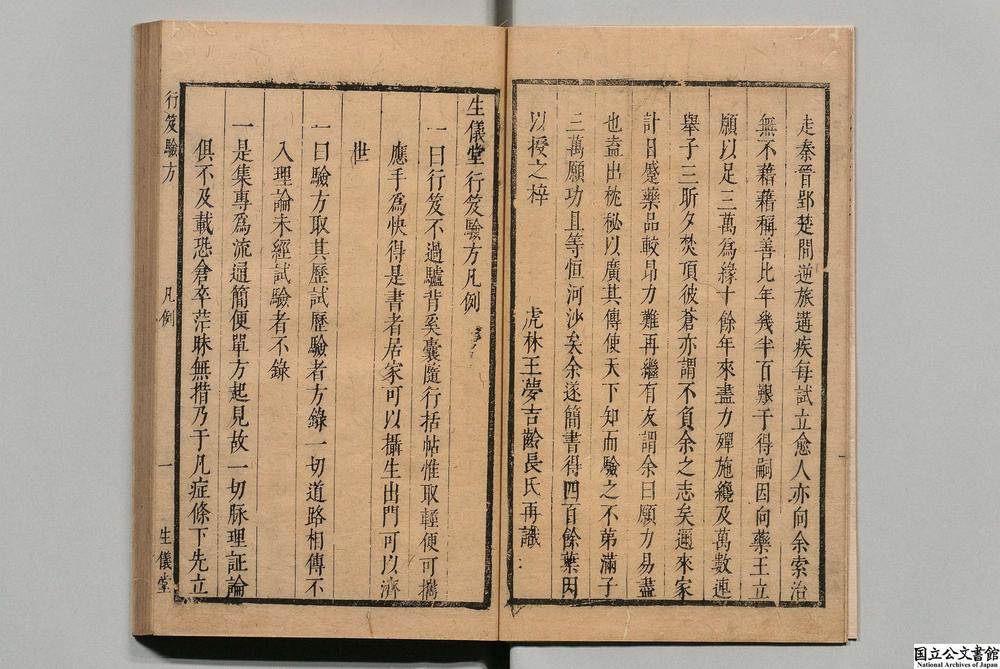 走秦晉郢楚間逆旅遘疾每試立愈人亦向余索治
無不藉藉稱善比年幾半百艱于得嗣因向藥王立
願以足三萬為緣十餘年來盡力殫施纔及萬數連
舉子三昕夕焚頂彼蒼亦謂不負余之志矣邇來家
計日蹙藥品較昂力難再繼有友謂余曰願力易盡
也盍出枕秘以廣其傳使天下知而驗之不苐滿子
三萬願功且等恒河沙矣余遂簡書得四百餘葉因
以授之梓
虎林王夢吉齡長氏再識
生儀堂行笈驗方凡例
一曰行笈不過驢背奚囊隨行括帖惟取輕便可攜
應手為快得是書者居家可以攝生出門可以濟
世
一曰驗方取其歷試歷驗者方錄一切道路相傳不
入理論未經試驗者不錄
一是集專為流通簡便單方起見故一切脉理証論
俱不及載恐倉卒茫昧無措乃于凡症條下先立
行笈驗方 凡例 一 生儀堂
国立公文書館
National Archives of Japan